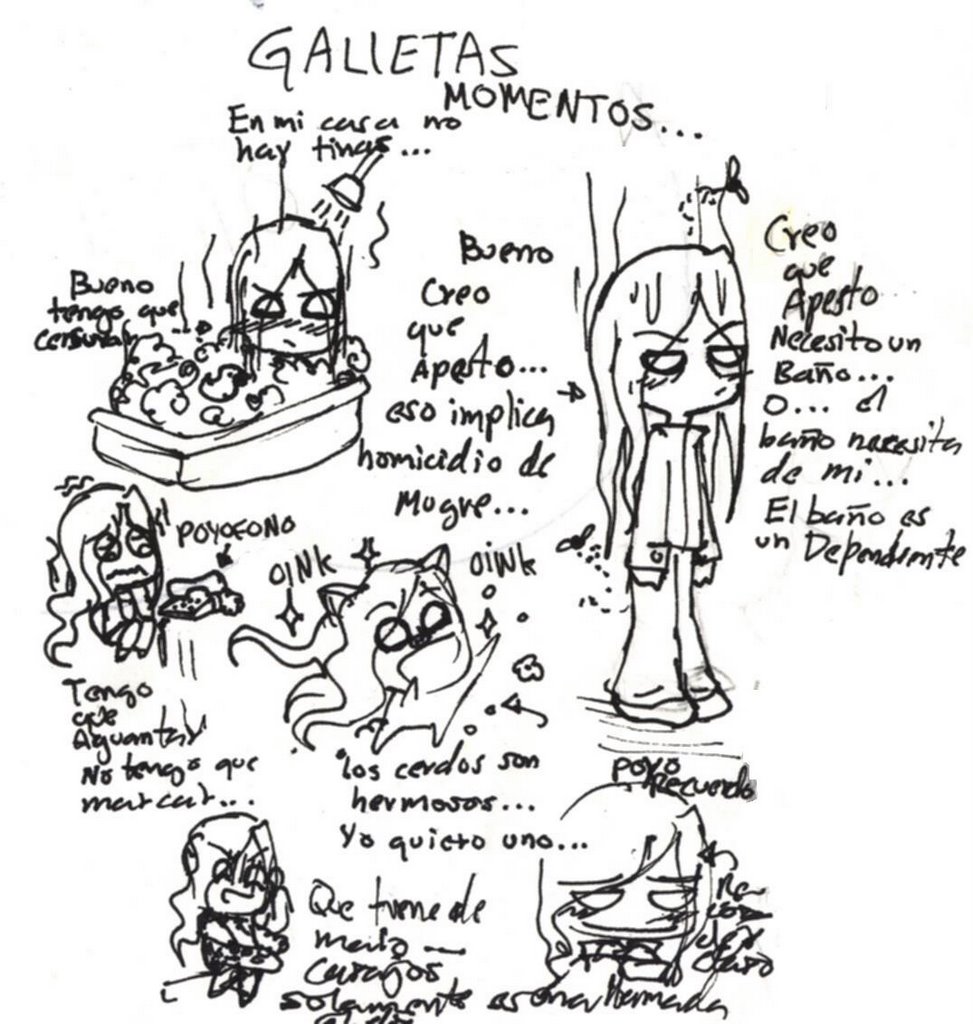 GALLETAS
MOMENTOS...
En mi casa no
hay tinas...
Bueno
tengo que
censurar
Bueno
Creo
que
Apesto...
eso implica
homicidio de
Mugre...
Creo
que
Apesto
Necesito un
Baño...
O... el
baño necesita
de mi...
El baño es
un Dependiente
POYOFONO
OINK
OINK
Tengo
que
Aguantar
No tengo que
marcar...
los cerdos son
hermosos...
Yo quiero uno...
Poyo
Recuerdo
Que tiene de
malo
Carajos
solamente es una llamada